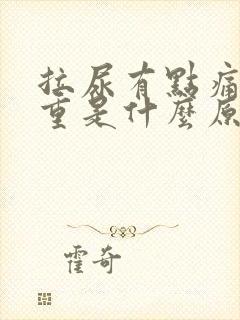 拉尿有點痛
重是什麼原
霍奇